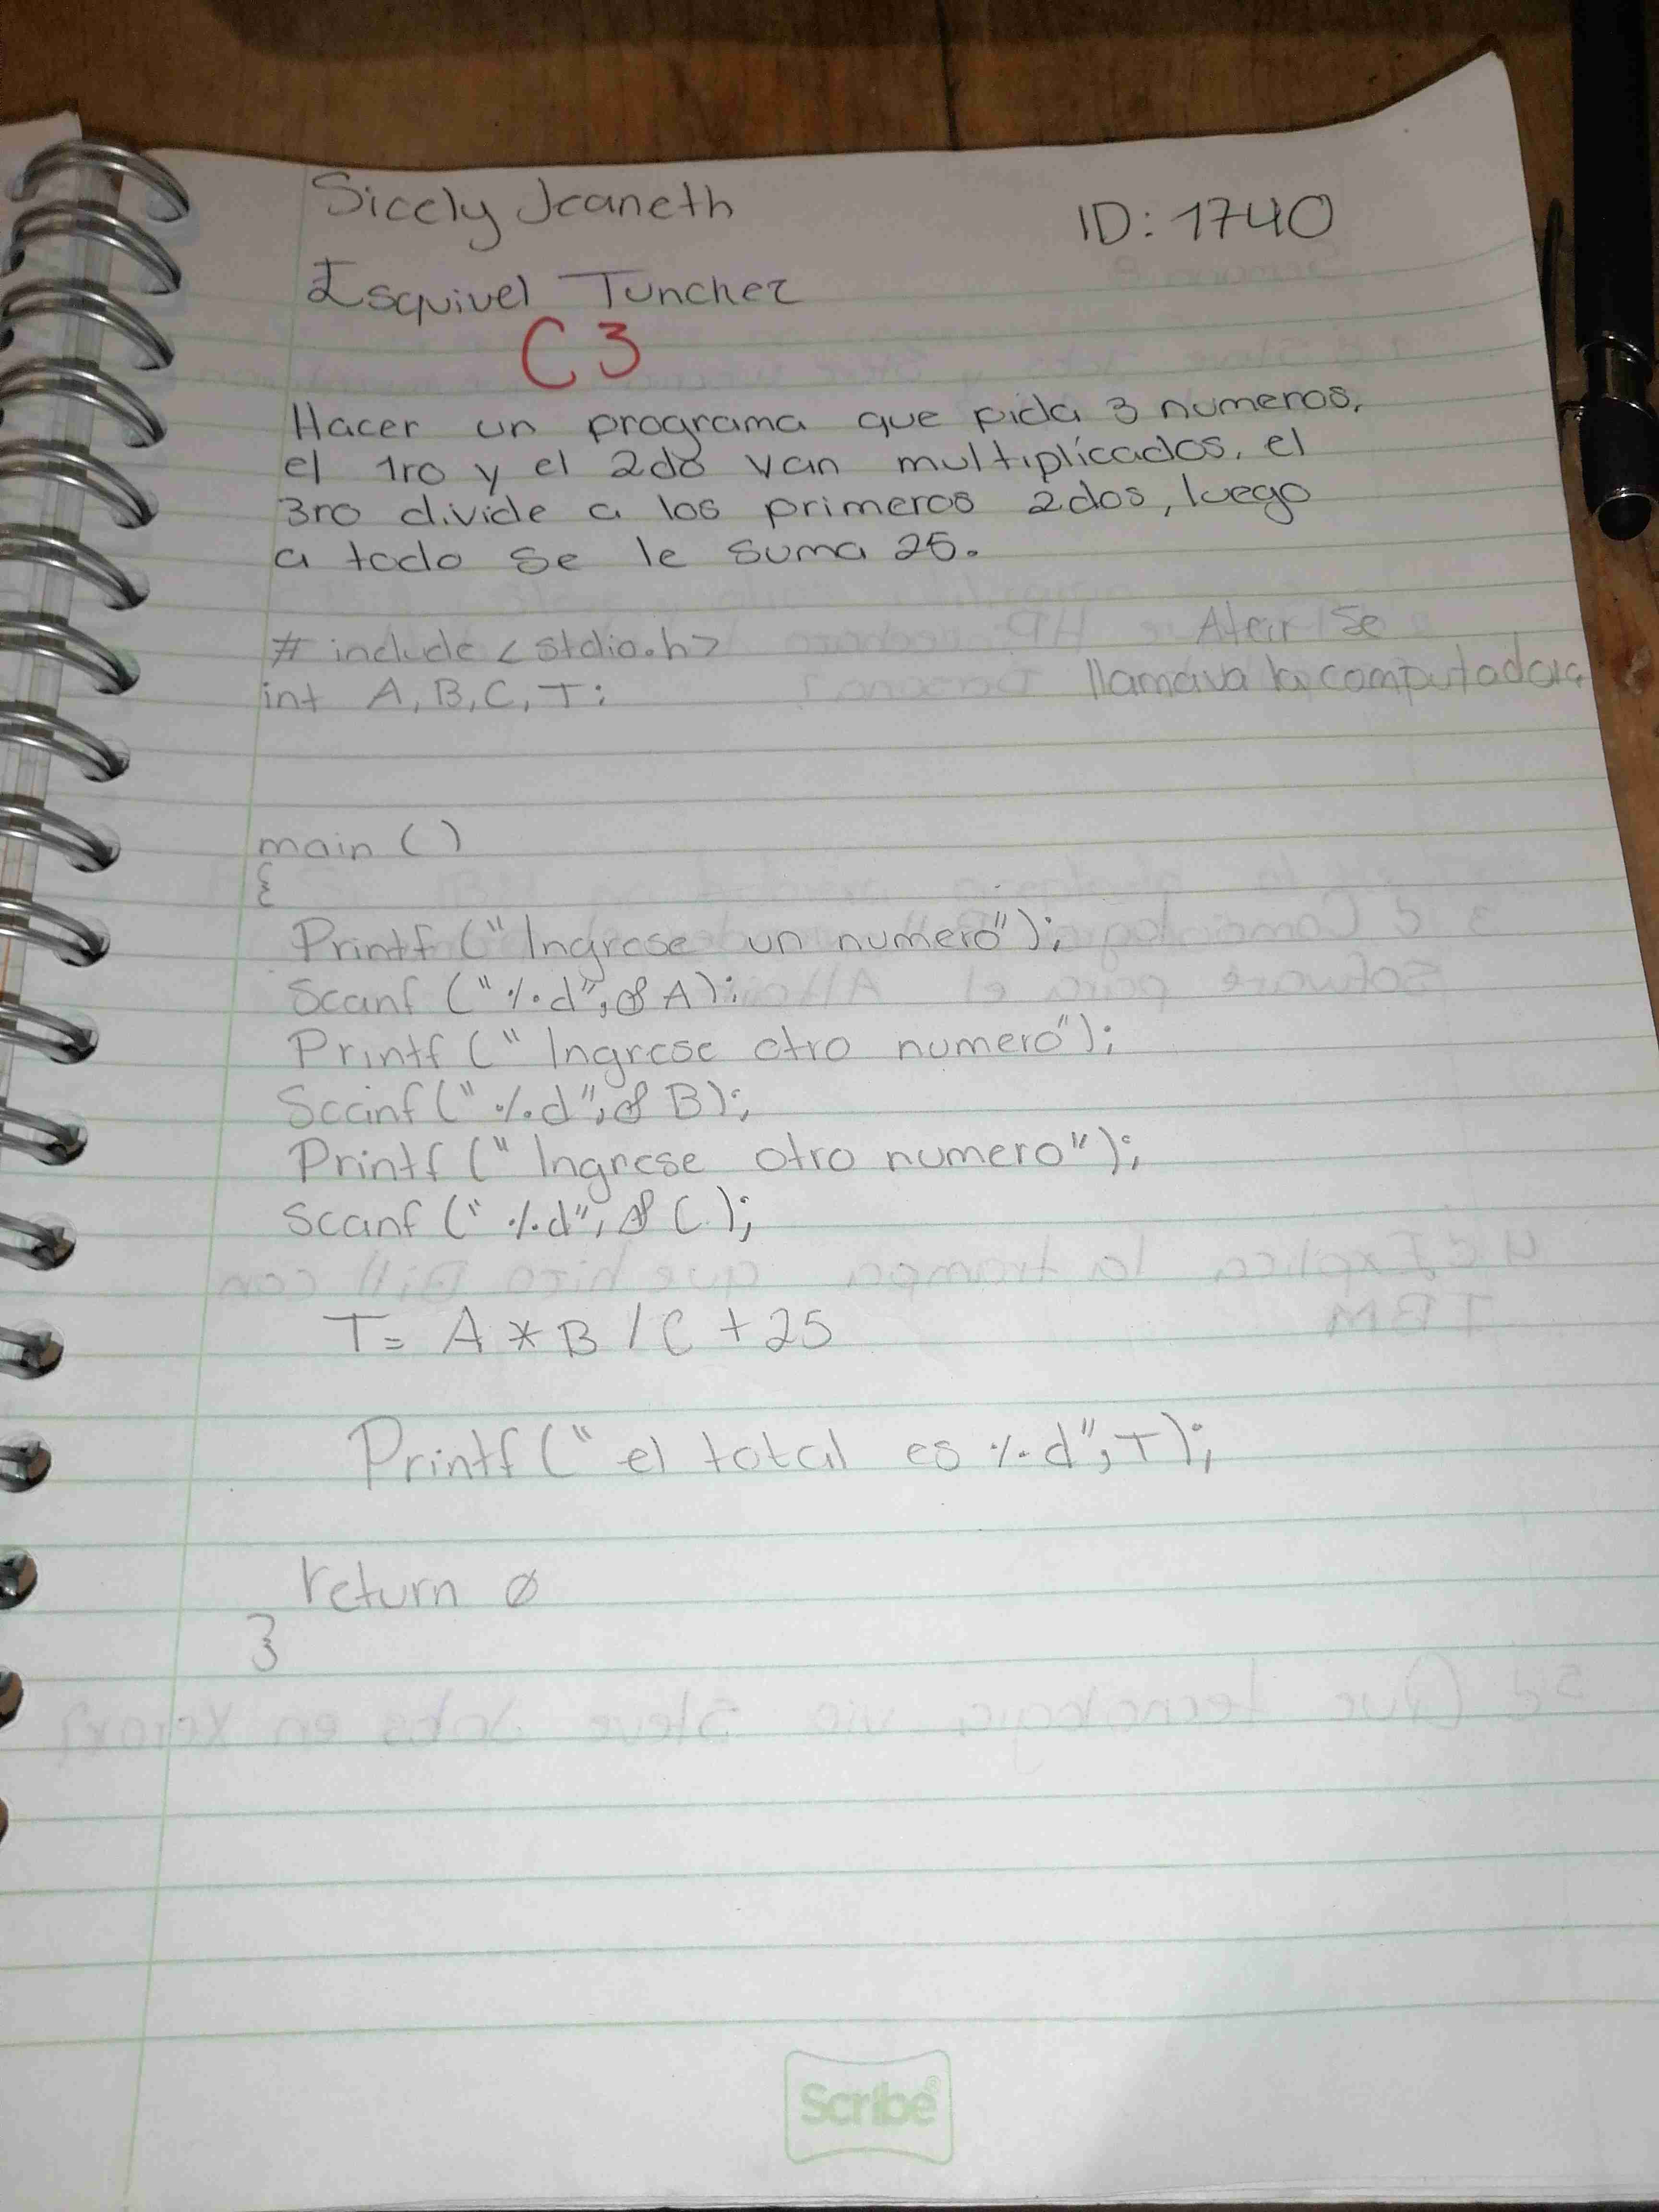 Sicely Jeaneth
ID: 1740
Esquivel Tuncher
C3
Hacer un programa que pida 3 numeros,
el 1ro y el 2do van multiplicados, el
3ro divide a los primeros 2dos, luego
a todo se le suma 25.
# include <stdio.h>
int A, B, C, T;
Atair se
llamava la computadora
main ()
{
Printf ("Ingrese un numero");
Scanf ("%d", & A);
Printf (" Ingrese otro numero");
Scanf (" %d", & B);
Printf (" Ingrese otro numero");
Scanf (" %d", & C );
T= A * B / C + 25
Printf (" el total es %d", T);
return 0
}
Scribe®